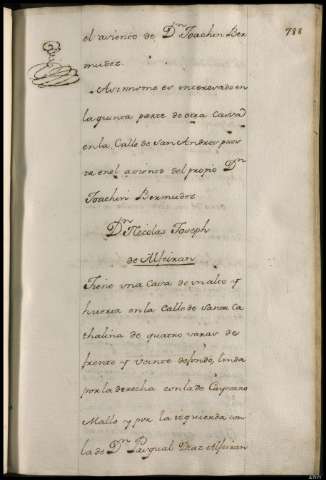 788
el asiento de Dn. Joachin Ber
mudez.
Asimismo es interesado en
la quinta parte de otra Cassa
en la Calle de San Andres pues
ta en el asiento del propio Dn.
Joachin Bermudez
Dn. Nicolas Joseph
de Alfeiran
Tiene una Casa de un alto y
huerta en la Calle de Santa Ca
thalina de quatro varas de
frente y veinte de fondo, linda
por la derecha con la de Cayetano
Mallo y por la izquierda con
la de Dn. Pasqual Diaz Alfeiran